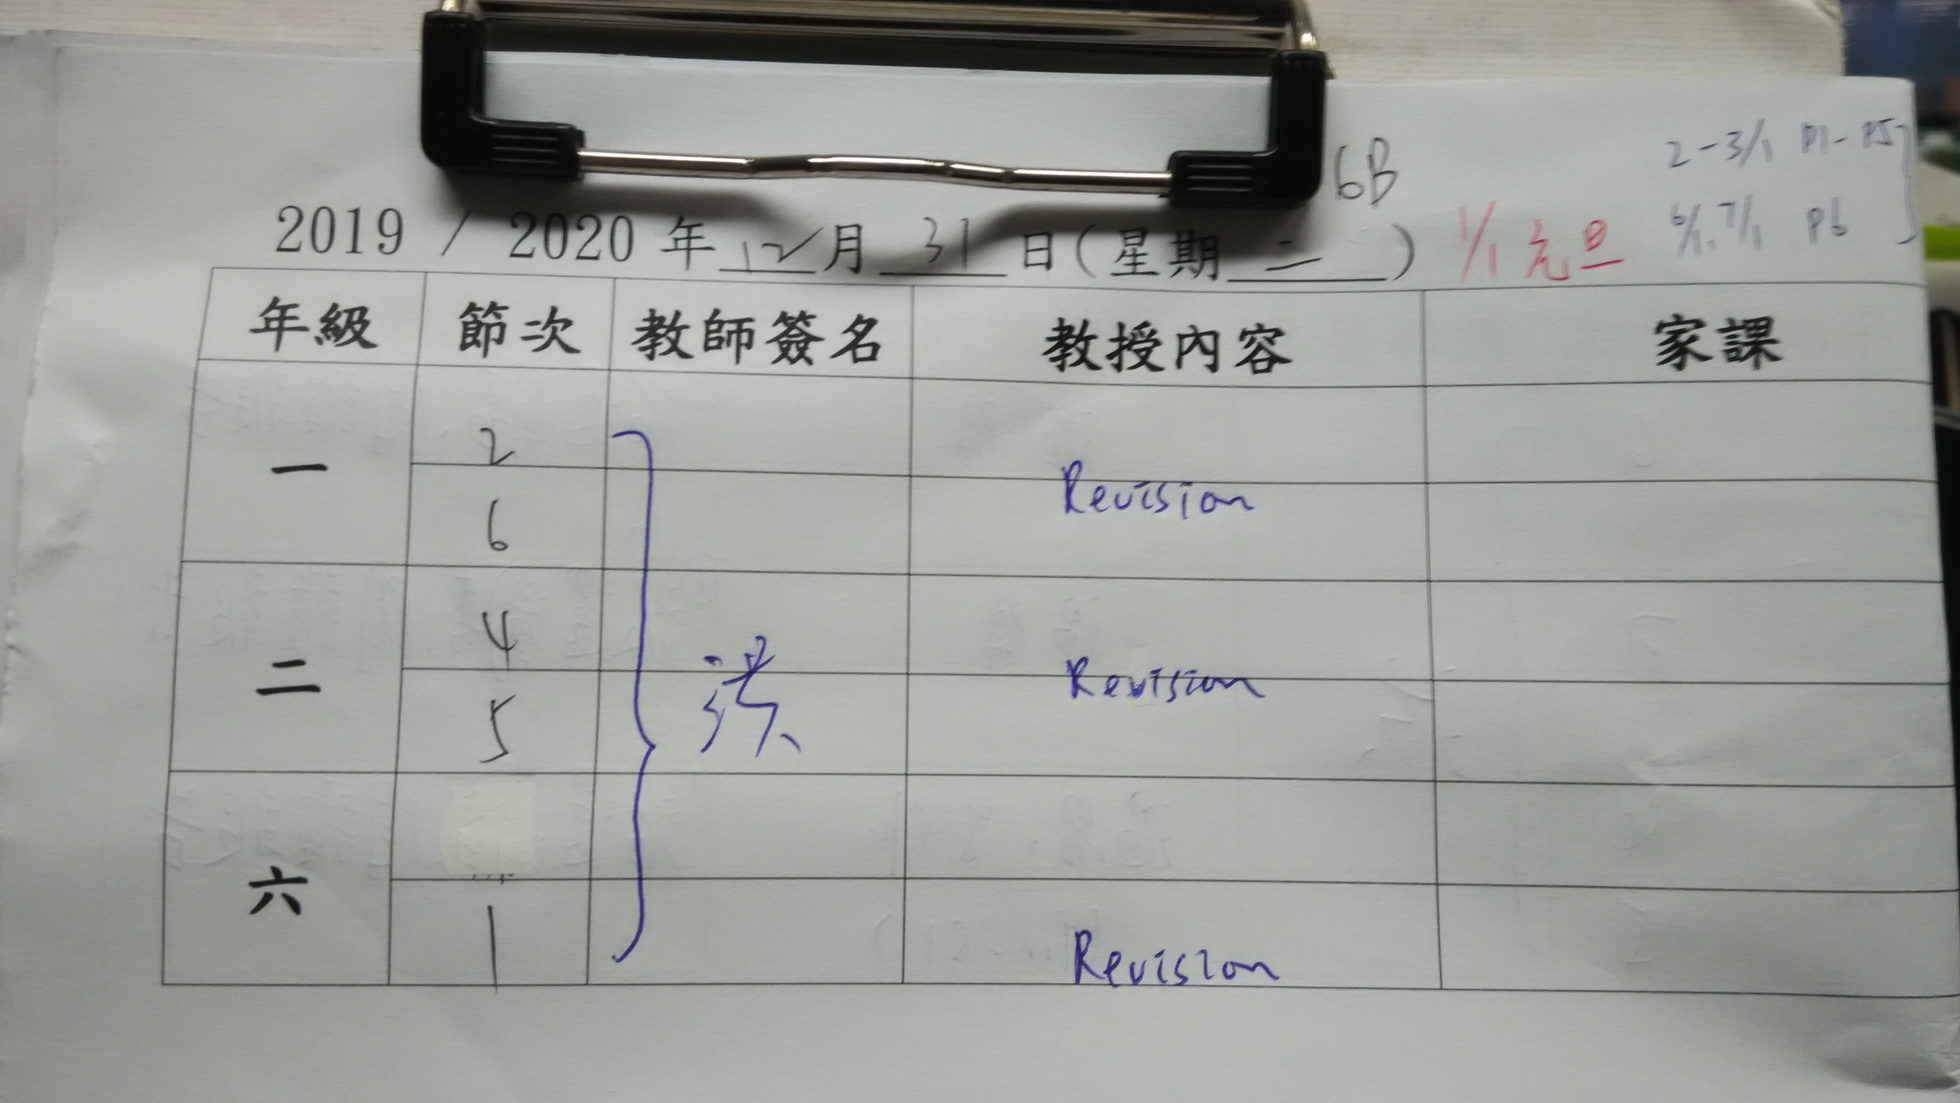 6B
2-3/1 P1-P5
2019 / 2020 年 12 月 31 日(星期 二 )
1/1 元旦
6/1, 7/1 P6
年級 節次 教師簽名 教授內容 家課
一 2
6
Revision
二 4
5
洪
Revision
六
1
Revision